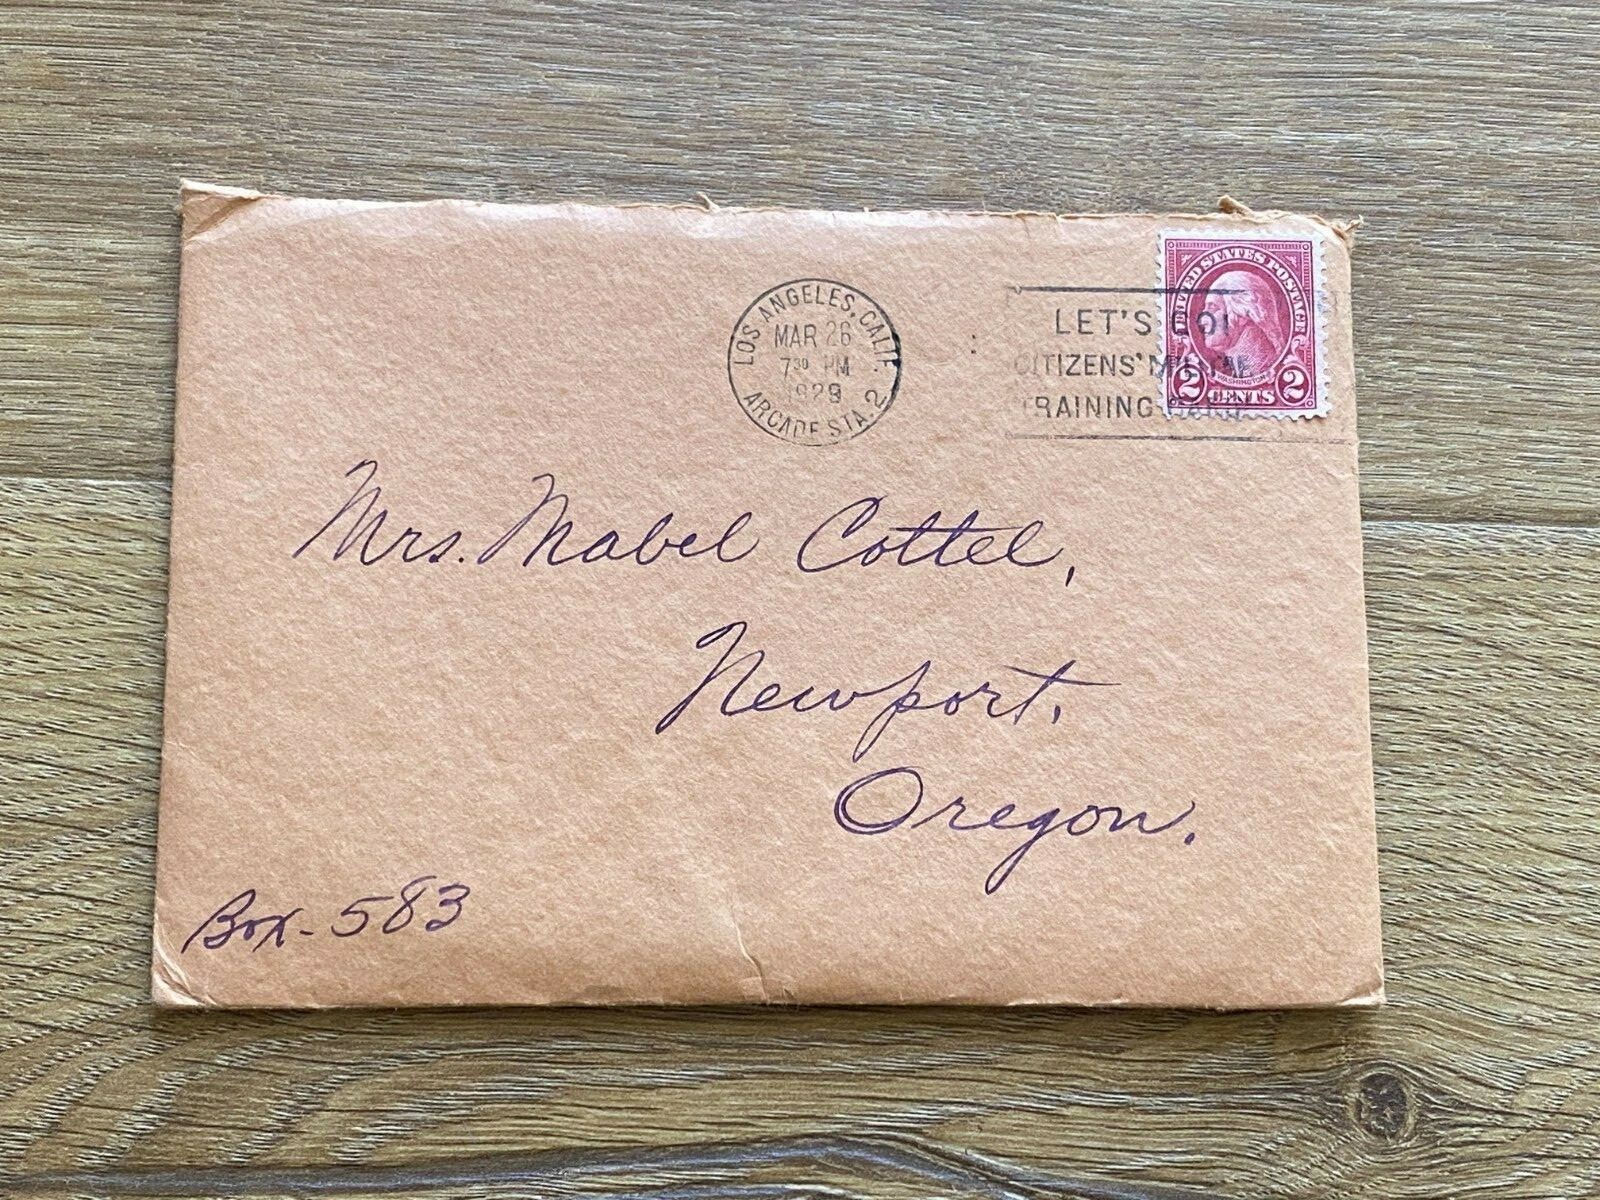 LOS ANGELES, CALIF.
MAR 26
7 30 PM
1929
ARCADE STA. 2
LET'S GO!
CITIZENS' MILITARY
TRAINING CAMP
UNITED STATES POSTAGE
WASHINGTON
2 CENTS 2
Mrs. Mabel Cottel,
Newport,
Oregon.
Box - 583